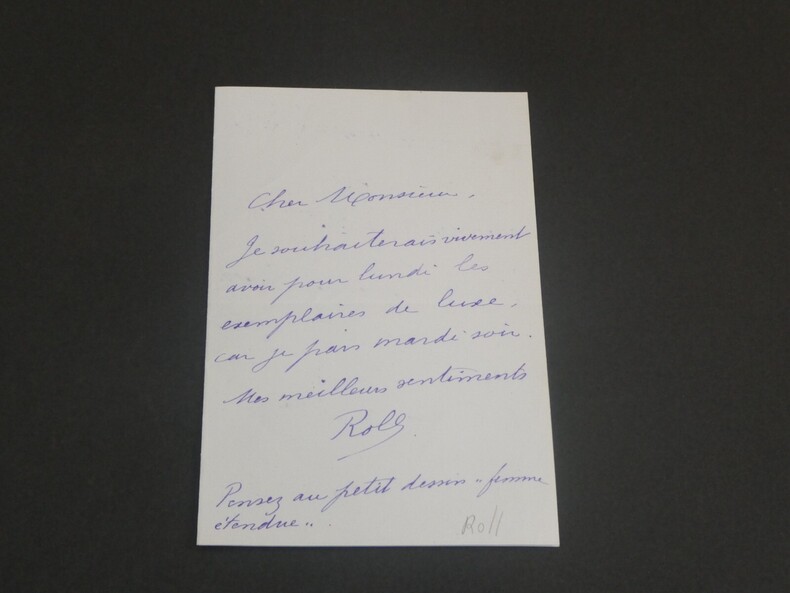 Cher Monsieur,
Je souhaiterais vivement
avoir pour lundi les
exemplaires de luxe,
car je pars mardi soir.
Mes meilleurs sentiments
Roll
Pensez au petit dessin „ femme
étendue „.
Roll